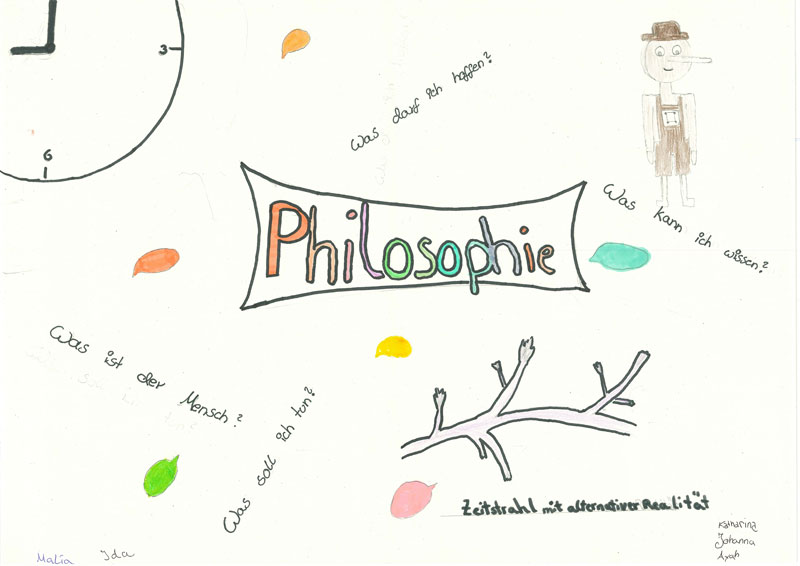 3
6
Was darf ich hoffen?
Philosophie
Was kann ich wissen?
Was ist der Mensch?
Was soll ich tun?
Zeitstrahl mit alternativer Realität
Katharina
Johanna
Ayah
Malia
Ida